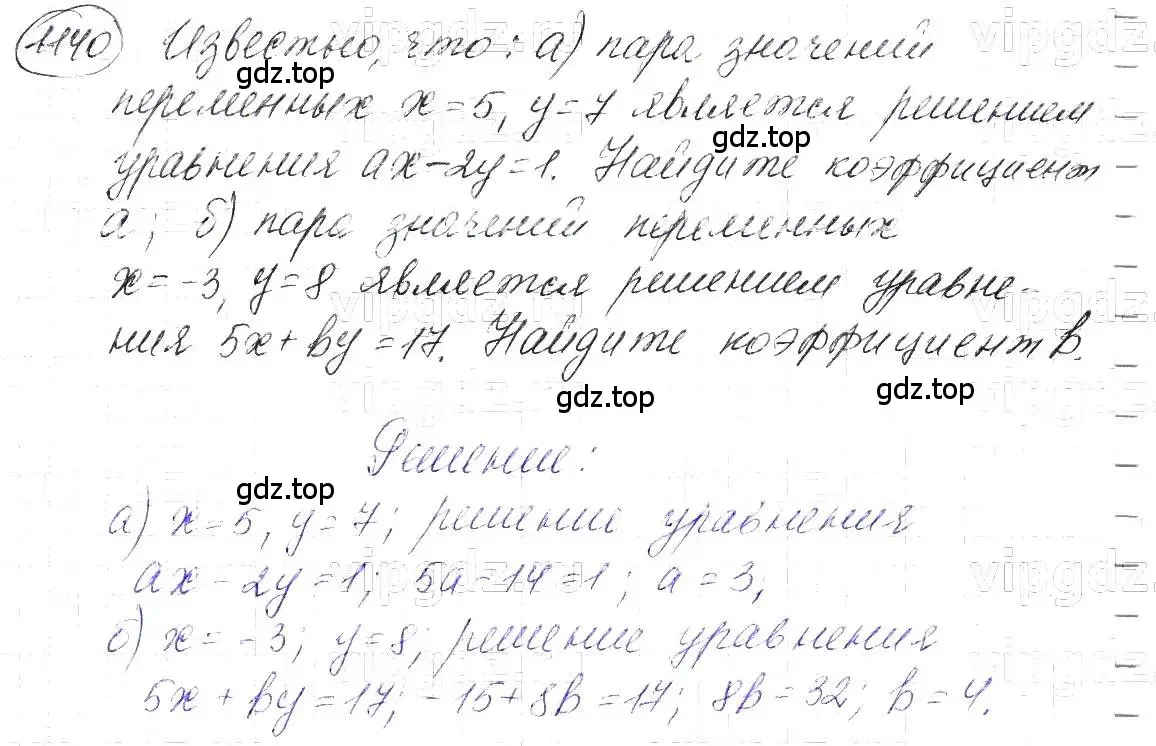 1140 Известно, что: а) пара значений
gdz.top
переменных x=5, y=7 является решением
gdz.top
уравнения ax-2y=1. Найдите коэффициент
а; б) пара значений переменных
x=-3, y=8 является решением уравне-
ния 5x+вy=17. Найдите коэффициент в.
gdz.top gdz.top
Решение:
gdz.top
а) x=5, y=7; решение уравнения
ax-2y=1; 5a-14=1; a=3;
б) x=-3; y=8; решение уравнения
5x+вy=17; -15+8в=17; 8в=32; в=4.